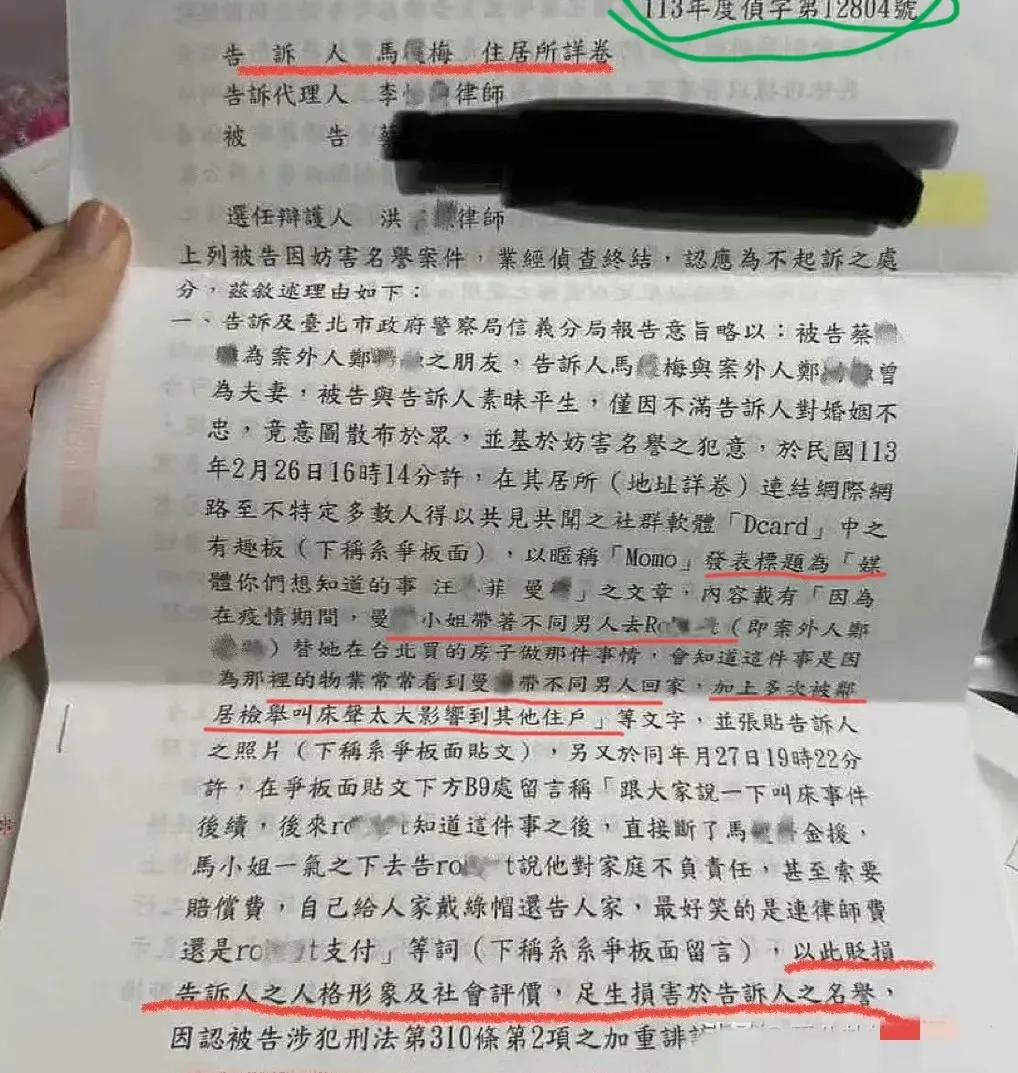 113年度偵字第12804號
告 訴 人 馬 梅 住居所詳卷
告訴代理人 李 律師
被 告 蔡
選任辯護人 洪 律師
上列被告因妨害名譽案件，業經偵查終結，認應為不起訴之處
分，茲敘述理由如下：
一、告訴及臺北市政府警察局信義分局報告意旨略以：被告蔡
為案外人鄭 之朋友，告訴人馬 梅與案外人鄭 曾
為夫妻，被告與告訴人素昧平生，僅因不滿告訴人對婚姻不
忠，竟意圖散布於眾，並基於妨害名譽之犯意，於民國113
年2月26日16時14分許，在其居所（地址詳卷）連結網際網
路至不特定多數人得以共見共聞之社群軟體「Dcard」中之
有趣板（下稱系爭板面），以暱稱「Momo」發表標題為「媒
體你們想知道的事 汪 菲 曼 」之文章，內容載有「因為
在疫情期間，曼 小姐帶著不同男人去Ro t（即案外人鄭
）替她在台北買的房子做那件事情，會知道這件事是因
為那裡的物業常常看到曼 帶不同男人回家，加上多次被鄰
居檢舉叫床聲太大影響到其他住戶」等文字，並張貼告訴人
之照片（下稱系爭板面貼文），另又於同年月27日19時22分
許，在爭板面貼文下方B9處留言稱「跟大家說一下叫床事件
後續，後來ro t知道這件事之後，直接斷了馬 金援，
馬小姐一氣之下去告ro t說他對家庭不負責任，甚至索要
賠償費，自己給人家戴綠帽還告人家，最好笑的是連律師費
還是ro t支付」等詞（下稱系系爭板面留言），以此貶損
告訴人之人格形象及社會評價，足生損害於告訴人之名譽，
因認被告涉犯刑法第310條第2項之加重誹